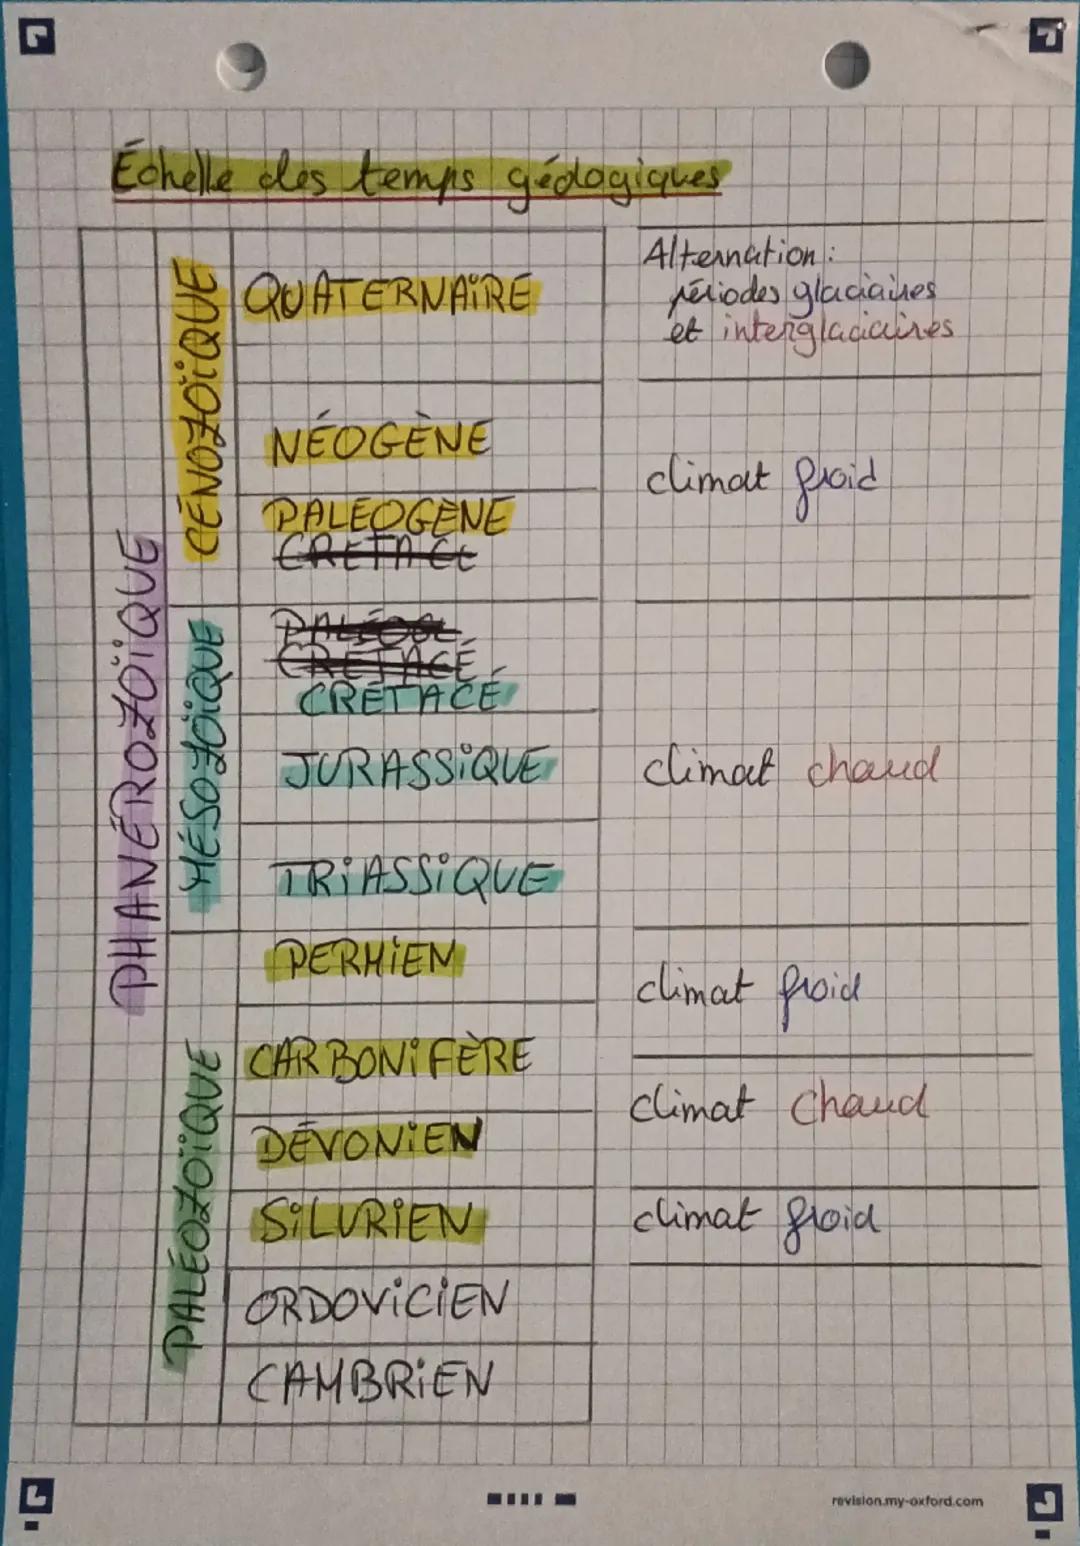 Échelle des temps géologiques
PHANÉROZOÏQUE
CÉNOZOÏQUE
QUATERNAIRE
Alternation :
périodes glaciaires
et interglaciaires
NÉOGÈNE
climat froid
PALÉOGÈNE
CRETACE
MÉSOZOÏQUE
PALÉOGE
CRETACÉ
CRÉTACÉ
JURASSIQUE
climat chaud
TRIASSIQUE
PALÉOZOÏQUE
PERMIEN
climat froid
CARBONIFÈRE
climat chaud
DÉVONIEN
SILURIEN
climat froid
ORDOVICIEN
CAMBRIEN
revision.my-oxford.com